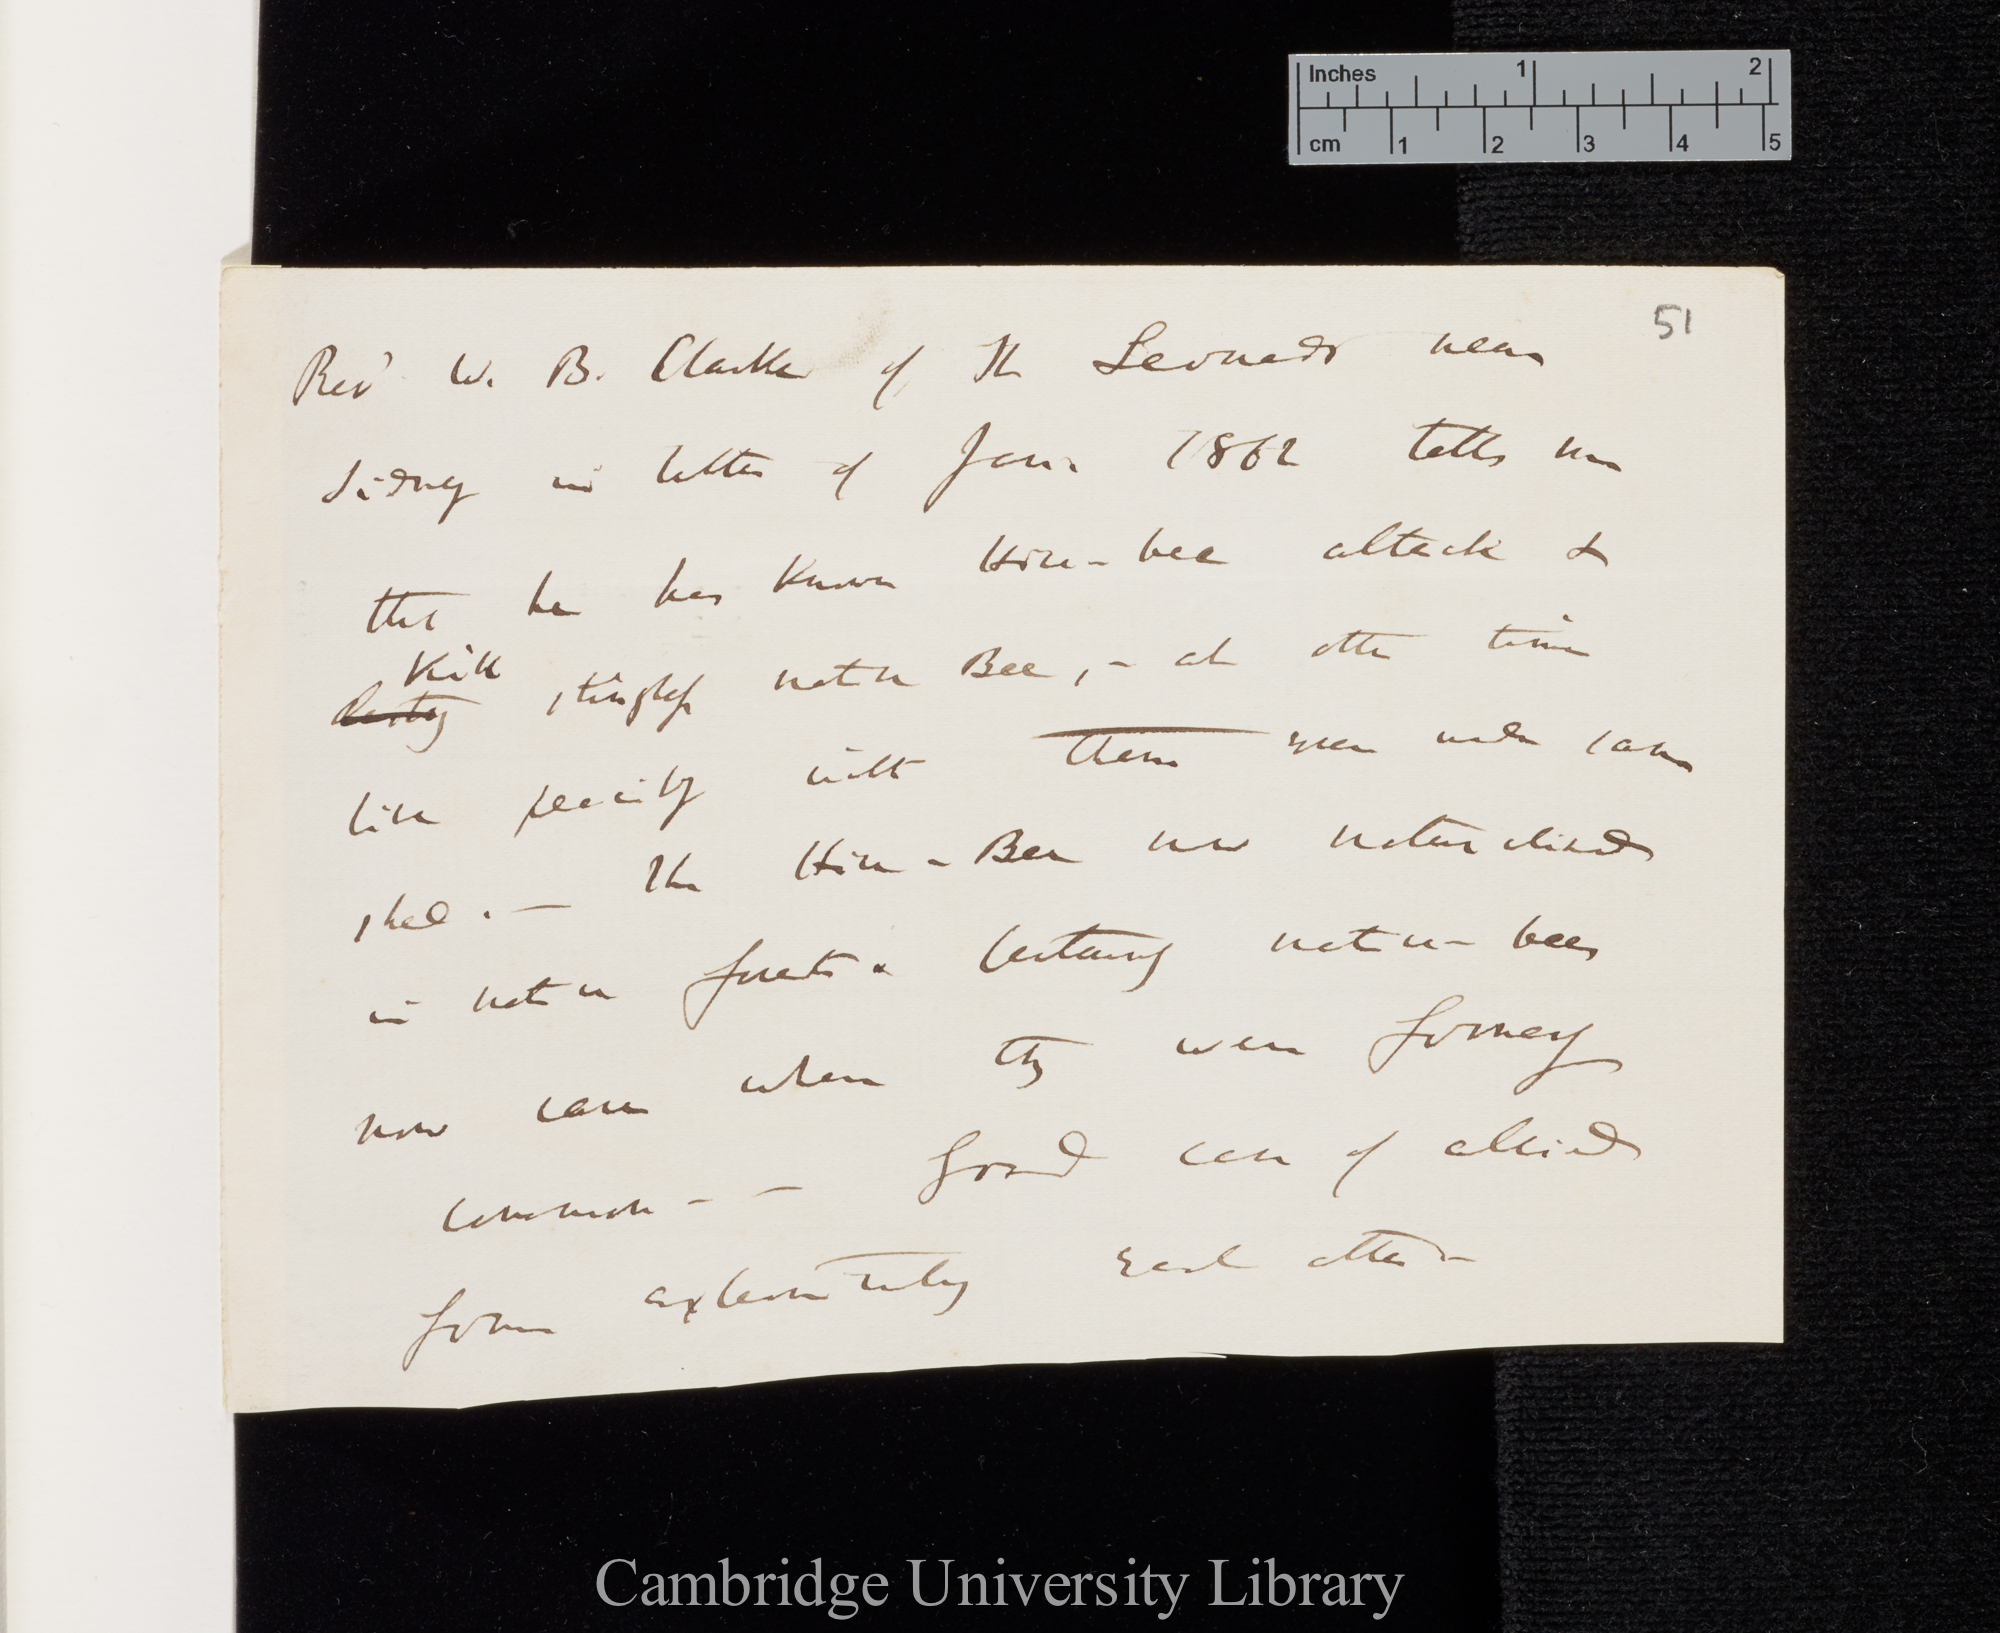 Inches 1 2
cm 1 2 3 4 5
51
Revd W. B. Clarke of St Leonards near
Sidney in letter of Jan. 1862 tells me
that he has known Hive-bee attack &
Kill
destroy stingless native Bee, - at other times
live peacibly with them even under same
shed. — The Hive-Bee now naturalised
in native forests & certainly native-bees
now rare when they were formerly
common - — Good case of allied
forms exterminating each other -
Cambridge University Library